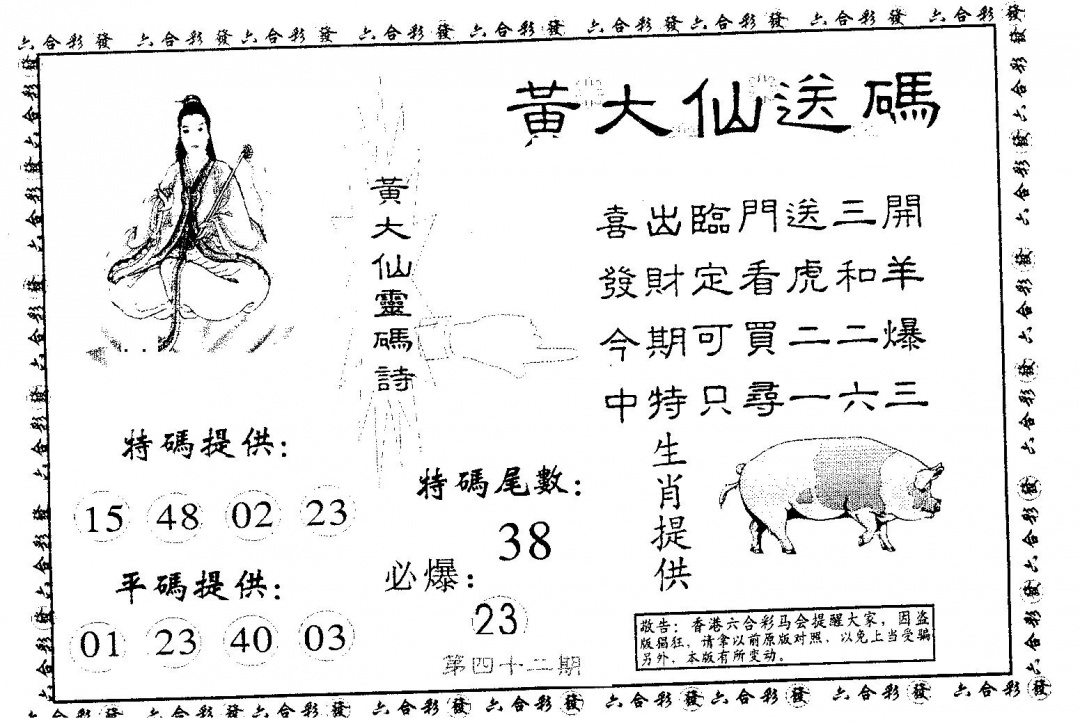 六合彩發 六合彩發六合彩發 六合彩發 六合彩發 六合彩發六合彩發 六合彩發 六合彩發
黃大仙送碼
黃大仙靈碼詩
喜出臨門送三開
發財定看虎和羊
今期可買二二爆
中特只尋一六三
特碼提供：
15 48 02 23
平碼提供：
01 23 40 03
特碼尾數：
38
必爆：
23
第四十二期
生肖提供
敬告：香港六合彩马会提醒大家，因盗
版猖狂，请拿以前原版对照，以免上当受骗
另外，本版有所变动。
六合彩發 六合彩發六合彩發 六合彩發 六合彩發 六合彩發六合彩發 六合彩發 六合彩發